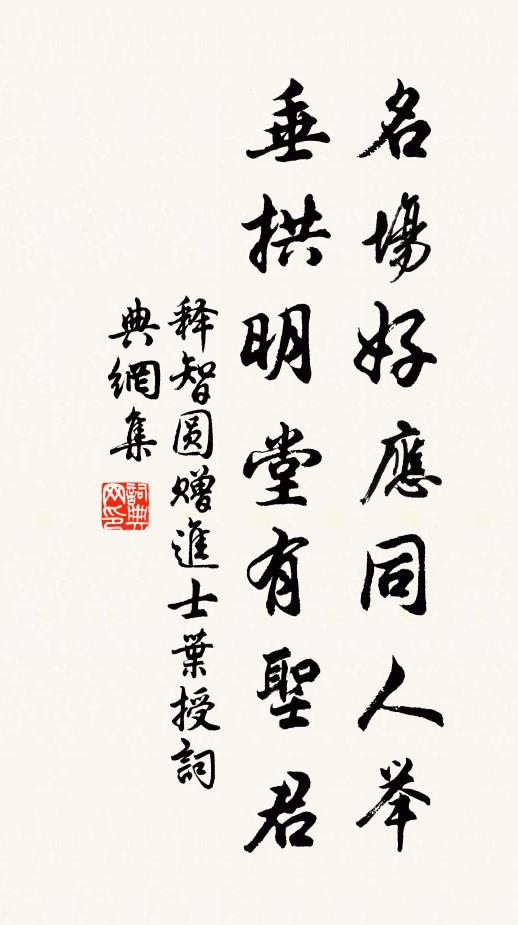 名場好應同人举
垂拱明堂有聖君
释智圆赠進士葉授詞
典網集
詞典
网印